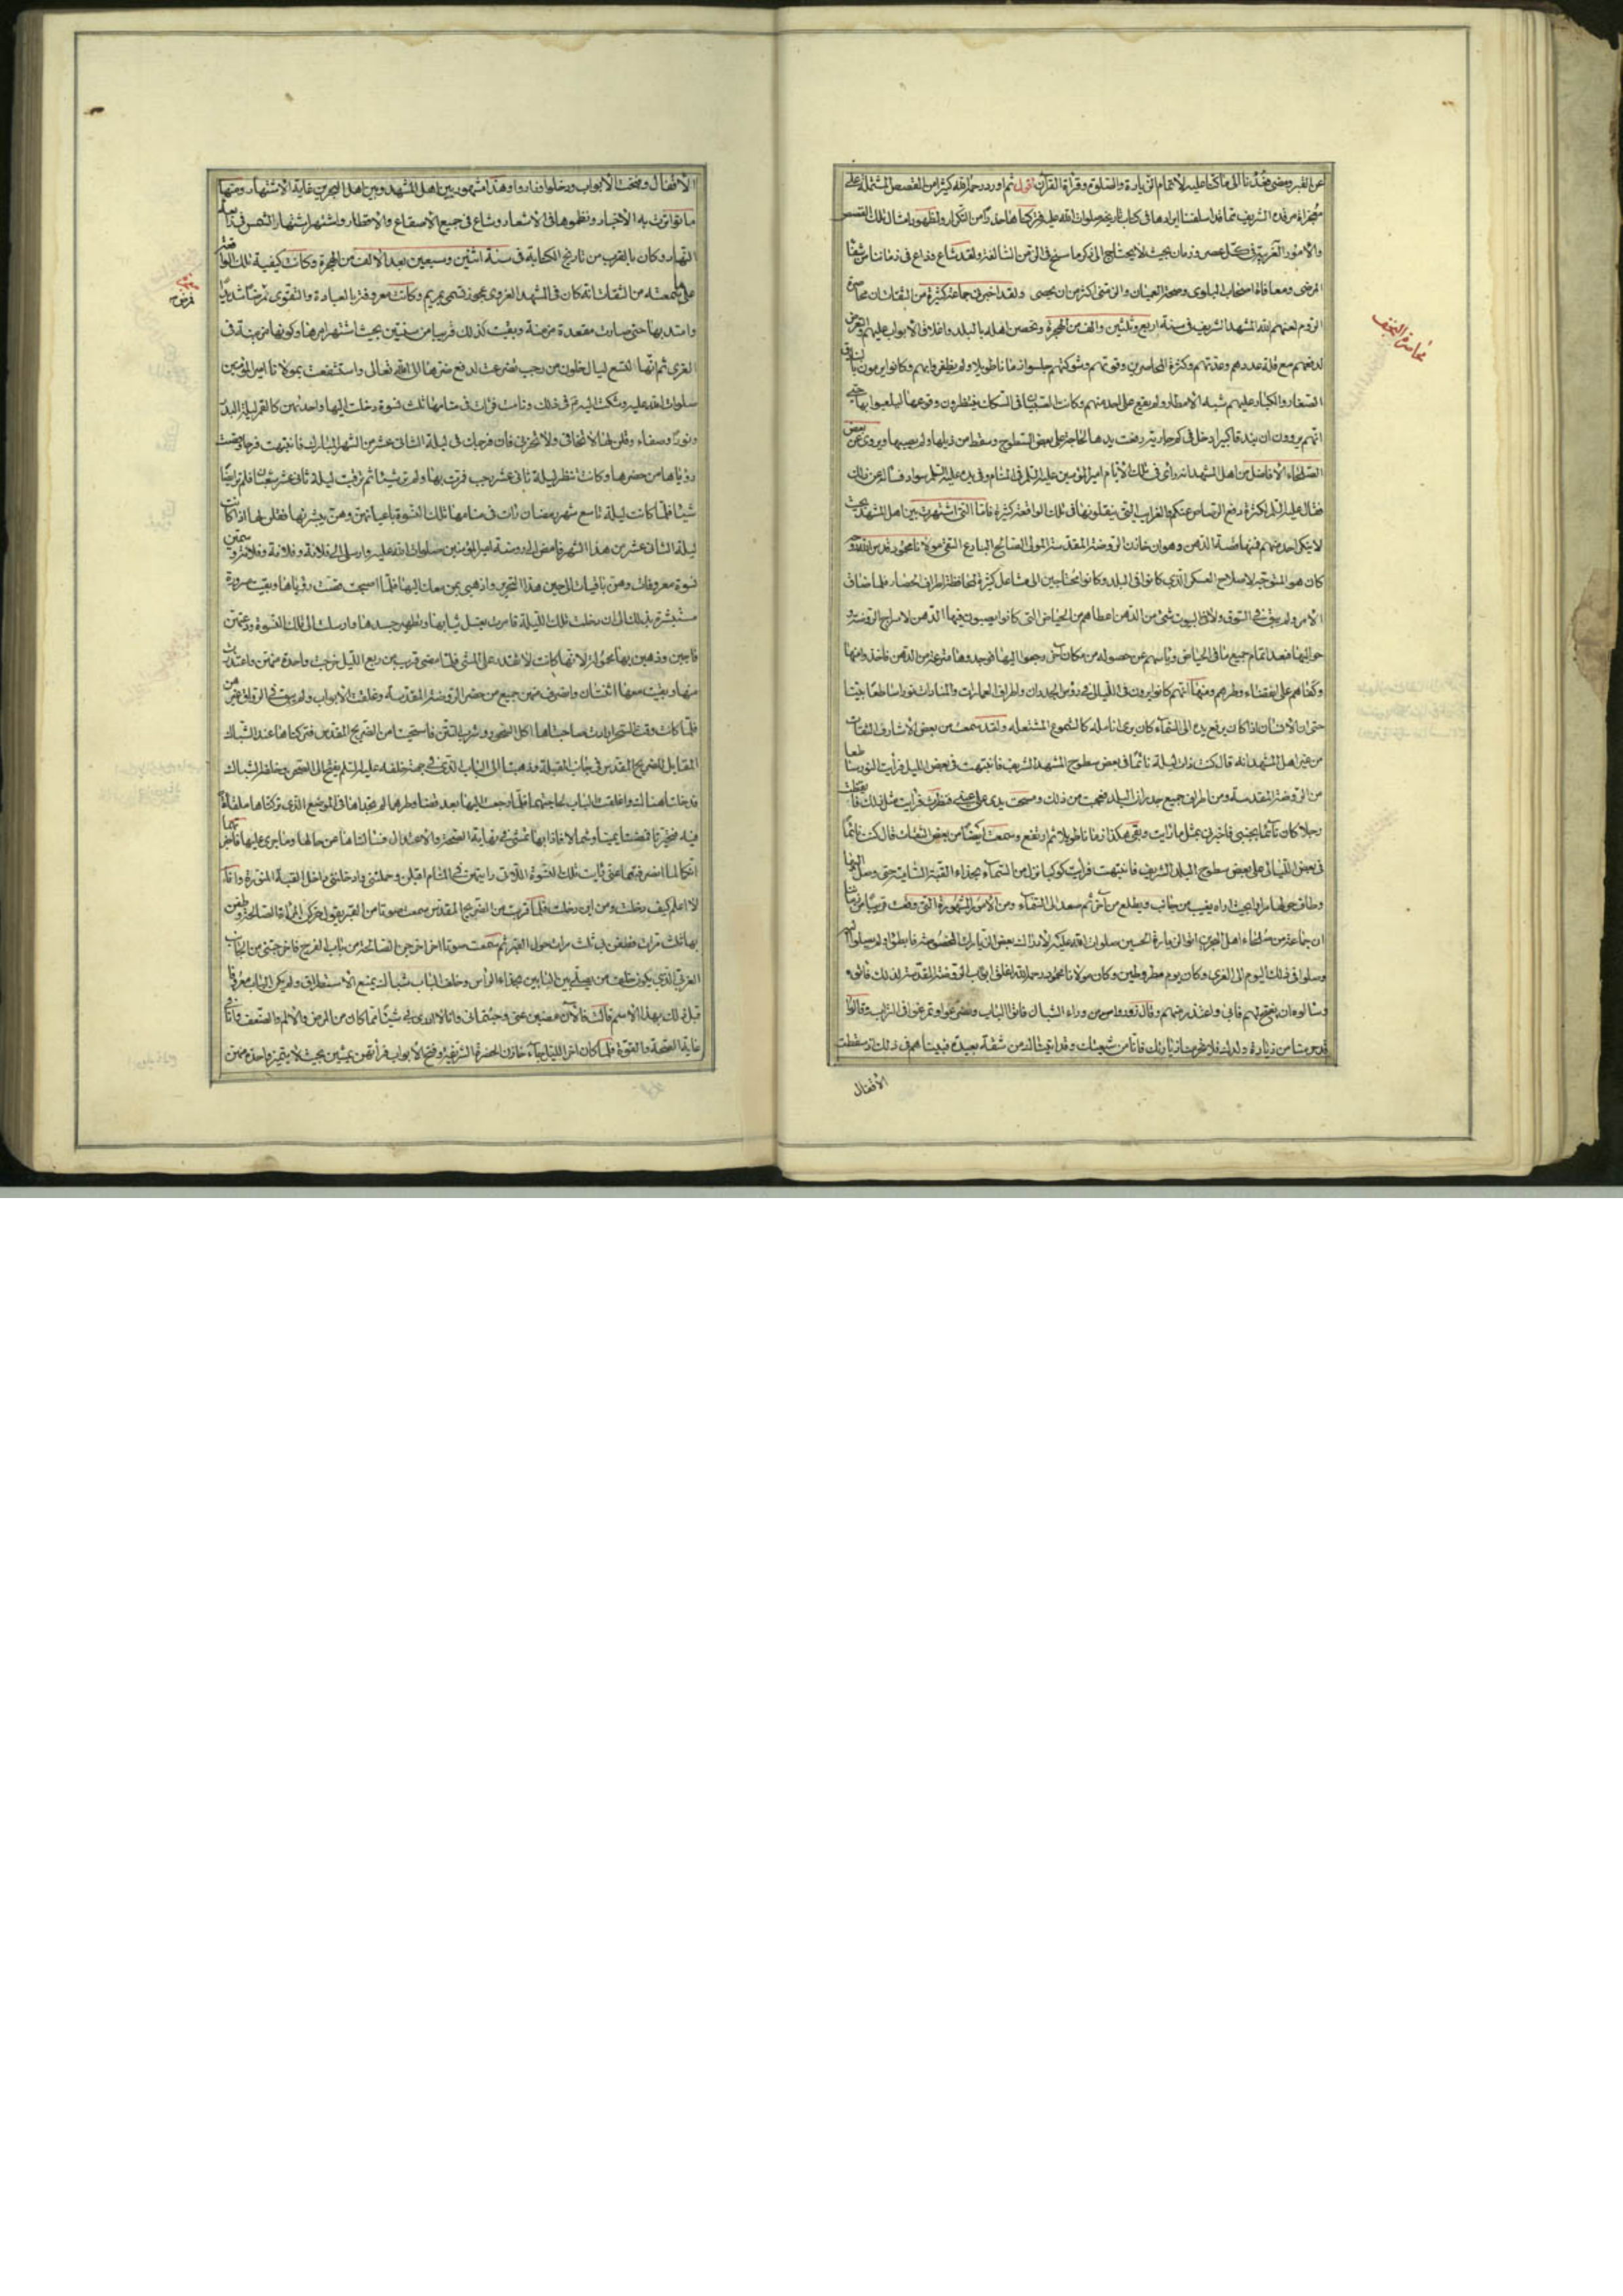 عن القبر ومضى فعُدنا الى ما كنا عليه لاتمام الزيارة والصلوة وقراءة القرآن اقول ثم اورد رحمه الله كثيرا من القصص المشتملة على
معجزاة مرقده الشريف مما قد اسلفنا ايرادها في كتاب تاريخه صلوات الله عليه فتركناها حذرا من التكرار ولظهور امثال تلك القصص
والامور الغريبة في كل عصر وزمان بحيث لا يحتاج الى ذكر ما سنح في الازمن السالفة ولقد شاع وذاع في زماننا من شفاء
المرضى ومعافاة اصحاب البلوى وصحة العميان والزمنى اكثر من ان يحصى ولقد اخبرني جماعة كثيرة من الثقات ان محاصرة
الروم لعنهم الله المشهد الشريف في سنة اربع وثلثين والف من الهجرة وتحصن اهله بالبلد واغلاق الابواب عليهم والتعرض
لدفعهم مع قلة عددهم وعدتهم وكثرة المحاصرين وقوتهم وشوكتهم جلسوا زمانا طويلا ولم يظفروا بهم وكانوا يرمون بالبنادق
الصغار والكبار عليهم شبه الامطار ولم يقع على احد منهم وكانت الصبيان في السكك ينتظرون وقوعها ليلعبوا بها حتى
انهم يروون ان بندقا كبيرا دخل في كم جارية رفعت يدها لحاجة على بعض السطوح وسقط من ذيلها ولم يصبها ويروى عن بعض
الصلحاء الافاضل من اهل المشهد انه راى في تلك الايام امير المؤمنين عليه السلم في المنام وفي يده عليه السلم سواد فسأله عن ذلك
فقال عليه السلم لكثرة دفع الرصاص عنكم والغرايب التي ينقلونها في تلك الواقعة كثيرة فاما التي اشتهرت بين اهل المشهد بحيث
لا ينكره احد منهم فمنها قصة الدهن وهو ان خازن الروضة المقدسة المولى الصالح البارع التقي مولانا محمود قدس الله روحه
كان هو المتوجه لاصلاح العسكر الذي كانوا في البلد وكانوا يحتاجين الى مشاعل كثيرة لمحافظة اطراف الحصار فلما ضاق
الامر ولم يبق في السوق ولا في البيوت شئ من الدهن اعطاهم من الحياض التي كانوا يصبون فيها الدهن لاسراج الروضة و
حواليها فبعد اتمام جميع ما في الحياض وياسهم عن حصوله من مكان اخر رجعوا اليها فوجدوها مترعة من الدهن فاخذوا منها
وكفاهم على انقضاء وطرهم ومنها انهم كانوا يرون في الليالي في رؤس الجدران واطراف العمارات والمنارات نورا ساطعا بينا
حتى ان الانسان اذا كان يرفع يده الى السماء كان يرى انامله كالشموع المشتعلة ولقد سمعت من بعض الاشارف الثقات
من غير اهل المشهد انه قال كنت ذات ليلة نائما في بعض سطوح المشهد الشريف فانتبهت في بعض الليل فرأيت النور ساطعا
من الروضة المقدسة ومن اطراف جميع جدران البلد فعجبت من ذلك ومسحت يدي على عيني فنظرت فرأيت مثل ذلك فايقظت
رجلا كان نائما بجنبي فاخبرني بمثل ما رايت وبقي هكذا زمانا طويلا ثم ارتفع وسمعت ايضا من بعض الثقات قال كنت نائما
في بعض الليالي على بعض سطوح البلد الشريف فانتبهت فرأيت كوكبا نزل من السماء بحذاء القبة السامية حتى وصل اليها
وطاف حولها مرارا بحيث اراه يغيب من جانب ويطلع من آخر ثم صعد الى السماء ومن الامور المشهورة التي وقعت قريبا من زماننا
ان جماعة من صلحاء اهل البحرين اتوا لزيارة الحسين صلوات الله عليه لادراك بعض الزيارات المخصوصة فابطؤا ولم يصلوا اليه
ووصلوا في ذلك اليوم الى الغري وكان يوم مطر وطين وكان مولانا محمود رحمه الله اغلق ابواب الروضة المقدسة لذلك فاتوه
وسألوه ان يفتح لهم فابى واعتذر منهم وقال زوروا من وراء الشباك فاتوا الباب وتضرعوا وتمرغوا في التراب وقالوا
قد حرمنا من زيارة ولدك فلا تحرمنا زيارتك فانا من شيعتك وقد اتيناك من شقة بعيدة فبيناهم في ذلك اذ سقطت
الاقفال
محاصرة النجف
الاقفال وفتحت الابواب ودخلوا وزاروا وهذا مشهور بين اهل المشهد وبين اهل البحرين غاية الاشتهار ومنها
ما تواترت به الاخبار ونظموها في الاشعار وشاع في جميع الاصقاع والاقطار واشتهر اشتهار الشمس في رابعة
النهار وكان بالقرب من تاريخ الكتابة في سنة اثنين وسبعين بعد الالف من الهجرة وكانت كيفية تلك الواقعة
على ما سمعته من الثقات انه كان في المشهد الغروي عجوز تسمى بمريم وكانت معروفة بالعبادة والتقوى فمرضت مرضا شديدا
وامتد بها حتى صارت مقعدة مزمنة وبقيت كذلك قريبا من سنتين بحيث اشتهر امرها وكونها مزمنة في
الغري ثم انها لتسع ليال خلون من رجب تضرعت لدفع ضرها الى الله تعالى واستشفعت بمولانا امير المؤمنين
صلوات الله عليه وشكت اليه في ذلك ونامت فرأت في منامها ثلث نسوة دخلت اليها واحدتهن كالقمر ليلة البدر
ونورا وصفاء وقلن لها لا تخافي ولا تحزني فان فرجك في ليلة الثاني عشر من الشهر المبارك فانتبهت فرحا وقصت
رؤياها من حضرها وكانت تنتظر ليلة ثاني عشر رجب فمرت بها ولم تر شيئا ثم ترقبت ليلة ثاني عشر شعبان فلم تر ايضا
شيئا فلما كانت ليلة تاسع شهر رمضان رات في منامها تلك النسوة باعيانهن وهن يبشرنها فقلن لها اذا كانت
ليلة الثاني عشر من هذا الشهر فامضي الى روضة امير المؤمنين صلوات الله عليه وارسلي الى فلانة وفلانة وفلانة وسمين
نسوة معروفات وهن باقيات الى حين هذا التحرير واذهبي بهن معك اليها فلما اصبحت قصت رؤياها وبقيت مسرورة
مستبشرة بذلك الى ان دخلت تلك الليلة فامرت بغسل ثيابها وتطهير جسدها وارسلت الى تلك النسوة ودعتهن
فاجبن وذهبن بها محمولة لانها كانت لا تقدر على المشي فلما مضى قريب من ربع الليل خرجت واحدة منهن واعتذرت
منها وبقيت معها اثنتان وانصرف منهن جميع من حضر الروضة المقدسة وغلقت الابواب ولم يبق في الرواق غيرهن
فلما كانت وقت السحر ارادت صاحبتاها اكل السحور وشرب التتن فاستحيتا من الضريح المقدس فتركتاها عند الشباك
المقابل للضريح المقدس في جانب القبلة وذهبتا الى الباب الذي في جهة خلفه عليه السلم يفتح الى الصحن وخلفه الشباك
فدخلتا هناك واغلقت الباب لحاجتهما فلما رجعتا اليها بعد قضاء وطرهما لم تجداها في الموضع الذي تركتاها ملقاة
فيه فتحيرتا فمضتا يمينا وشمالا فاذا بها تمشي في نهاية الصحة والاعتدال فسألتاها عن حالها وما جرى عليها فاخبرتهما
انكما لما انصرفتما عني رأيت تلك النسوة اللاتي رايتهن في المنام اقبلن وحملنني وادخلنني داخل القبة المنورة وانا
لا اعلم كيف دخلت ومن اين دخلت فلما قربت من الضريح المقدس سمعت صوتا من القبر يقول حركن المراة الصالحة وطفن
بها ثلث مرات فطفن بي ثلث مرات حول القبر ثم سمعت صوتا اخر اخرجن الصالحة من باب الفرج فاخرجنني من الجانب
الغربي الذي يكون خلف من يصلي بين البابين بحذاء الرأس وخلف الباب شباك يمنع الاستطراق ولم يكن الباب معروفا
قبل ذلك بهذا الاسم قالت فالآن مضين عني وجئتماني وانا لا ارى بي شيئا مما كان من المرض والالم والضعف وانا في
غاية الصحة والقوة فلما كان اخر الليل جاء خازن الحضرة الشريفة وفتح الابواب فرآهن يمشين بحيث لا يتميز واحدة منهن